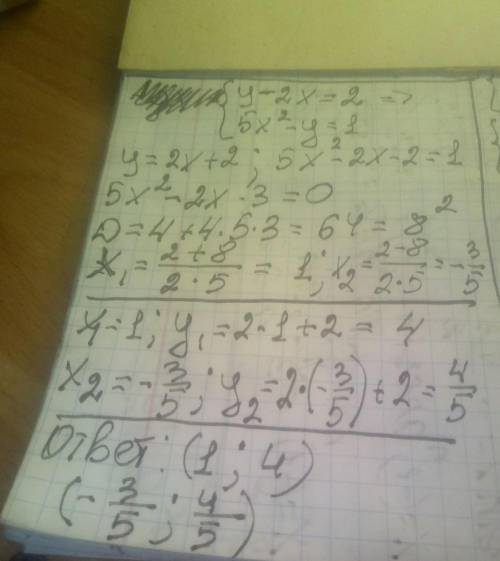 { y - 2x = 2 =>
5x² - y = 1
y = 2x + 2 ; 5x² - 2x - 2 = 1
5x² - 2x - 3 = 0
D = 4 + 4·5·3 = 64 = 8²
x₁ = (2+8)/(2·5) = 1 ; x₂ = (2-8)/(2·5) = -3/5
x₁ = 1 ; y₁ = 2·1 + 2 = 4
x₂ = -3/5 ; y₂ = 2·(-3/5) + 2 = 4/5
Ответ: (1 ; 4)
(-3/5 ; 4/5).